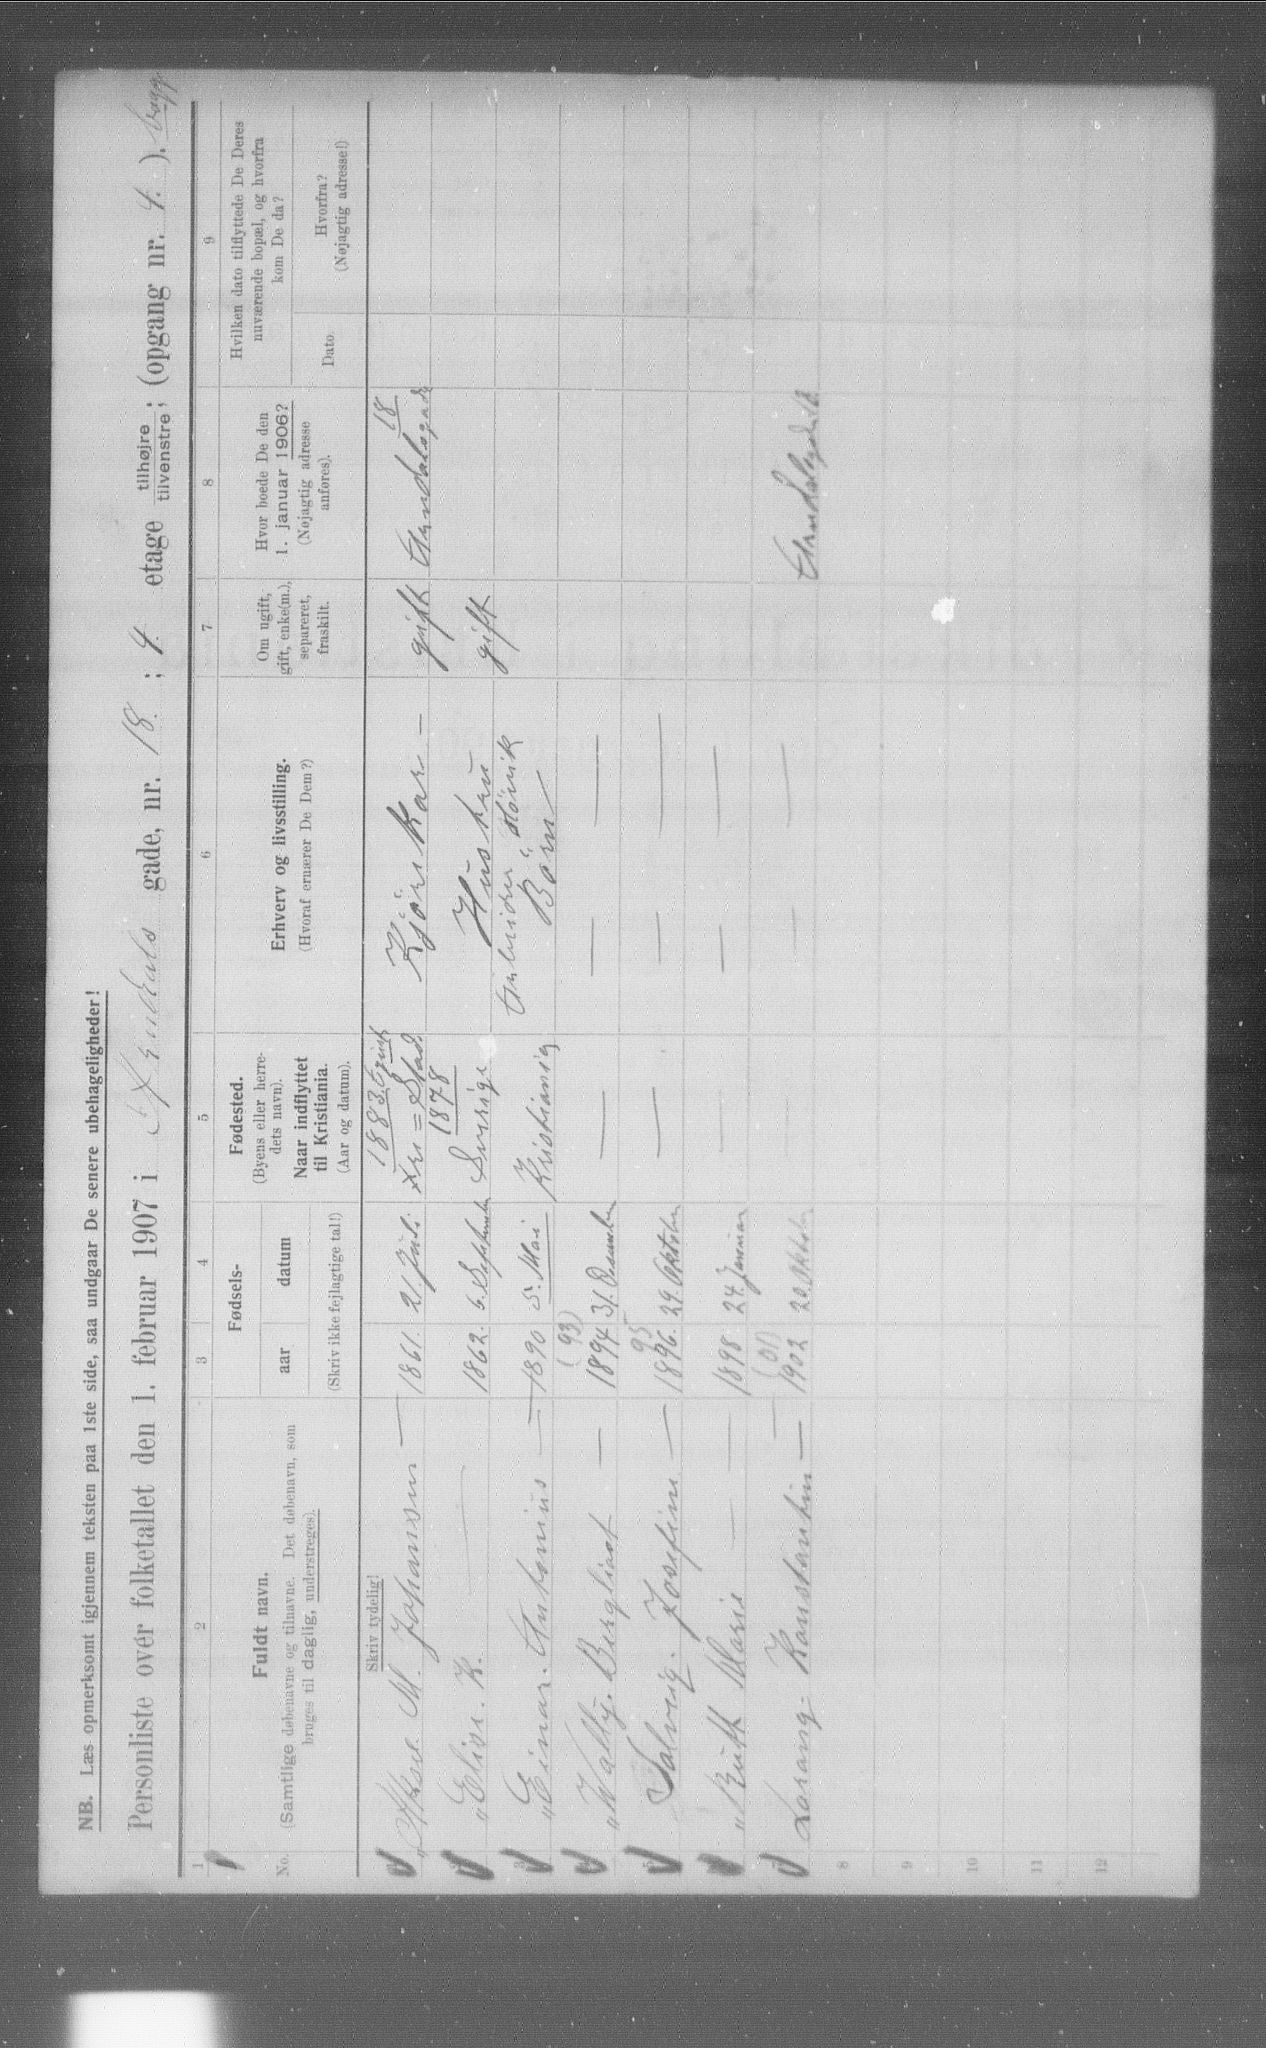 NB. Læs opmerksomt igjennem teksten paa 1ste side, saa undgaar De senere ubehageligheder!
Personliste over folketallet den 1. februar 1907 i Arendals gade, nr. 18. ; 4. etage tilhøjre tilvenstre; (opgang nr. 4. ). bagg
1 2 3 4 5 6 7 8 9
No.
Fuldt navn.
(Samtlige døbenavne og tilnavne. Det døbenavn, som
bruges til daglig, understreges).
Fødsels-
aar
datum
(Skriv ikke fejlagtige tal!)
Fødested.
(Byens eller herre-
dets navn).
Naar indflyttet
til Kristiania.
(Aar og datum).
Erhverv og livsstilling.
(Hvoraf ernærer De Dem?)
Om ugift,
gift, enke(m.),
separeret,
fraskilt.
Hvor boede De den
1. januar 1906?
(Nøjagtig adresse
anføres).
Hvilken dato tilflyttede De Deres
nuværende bopæl, og hvorfra
kom De da?
Dato.
Hvorfra?
(Nøjagtig adresse!)
Skriv tydelig!
M. Johansen — 1861. 21 Juli. 1883 Kr=Stad. Kjörekar — gift Arendalsgade 18
" Elise. K. — 1862. 6. September 1878 Sverige Hüs gift
" Einar. Antonius — 1890 5. Mai Kristiania Arbeider Børn
" Valby. Bergliaat — (93) 1894. 31. Desember — — —
Solveig. Josefine — 95 1896. 29. Oktober — — —
" Ruth Marie — — 1898 24. Januar — — —
Lorang- Konstantin — (01) 1902 20. Oktober — — Arendalsgade
8
9
10
11
12